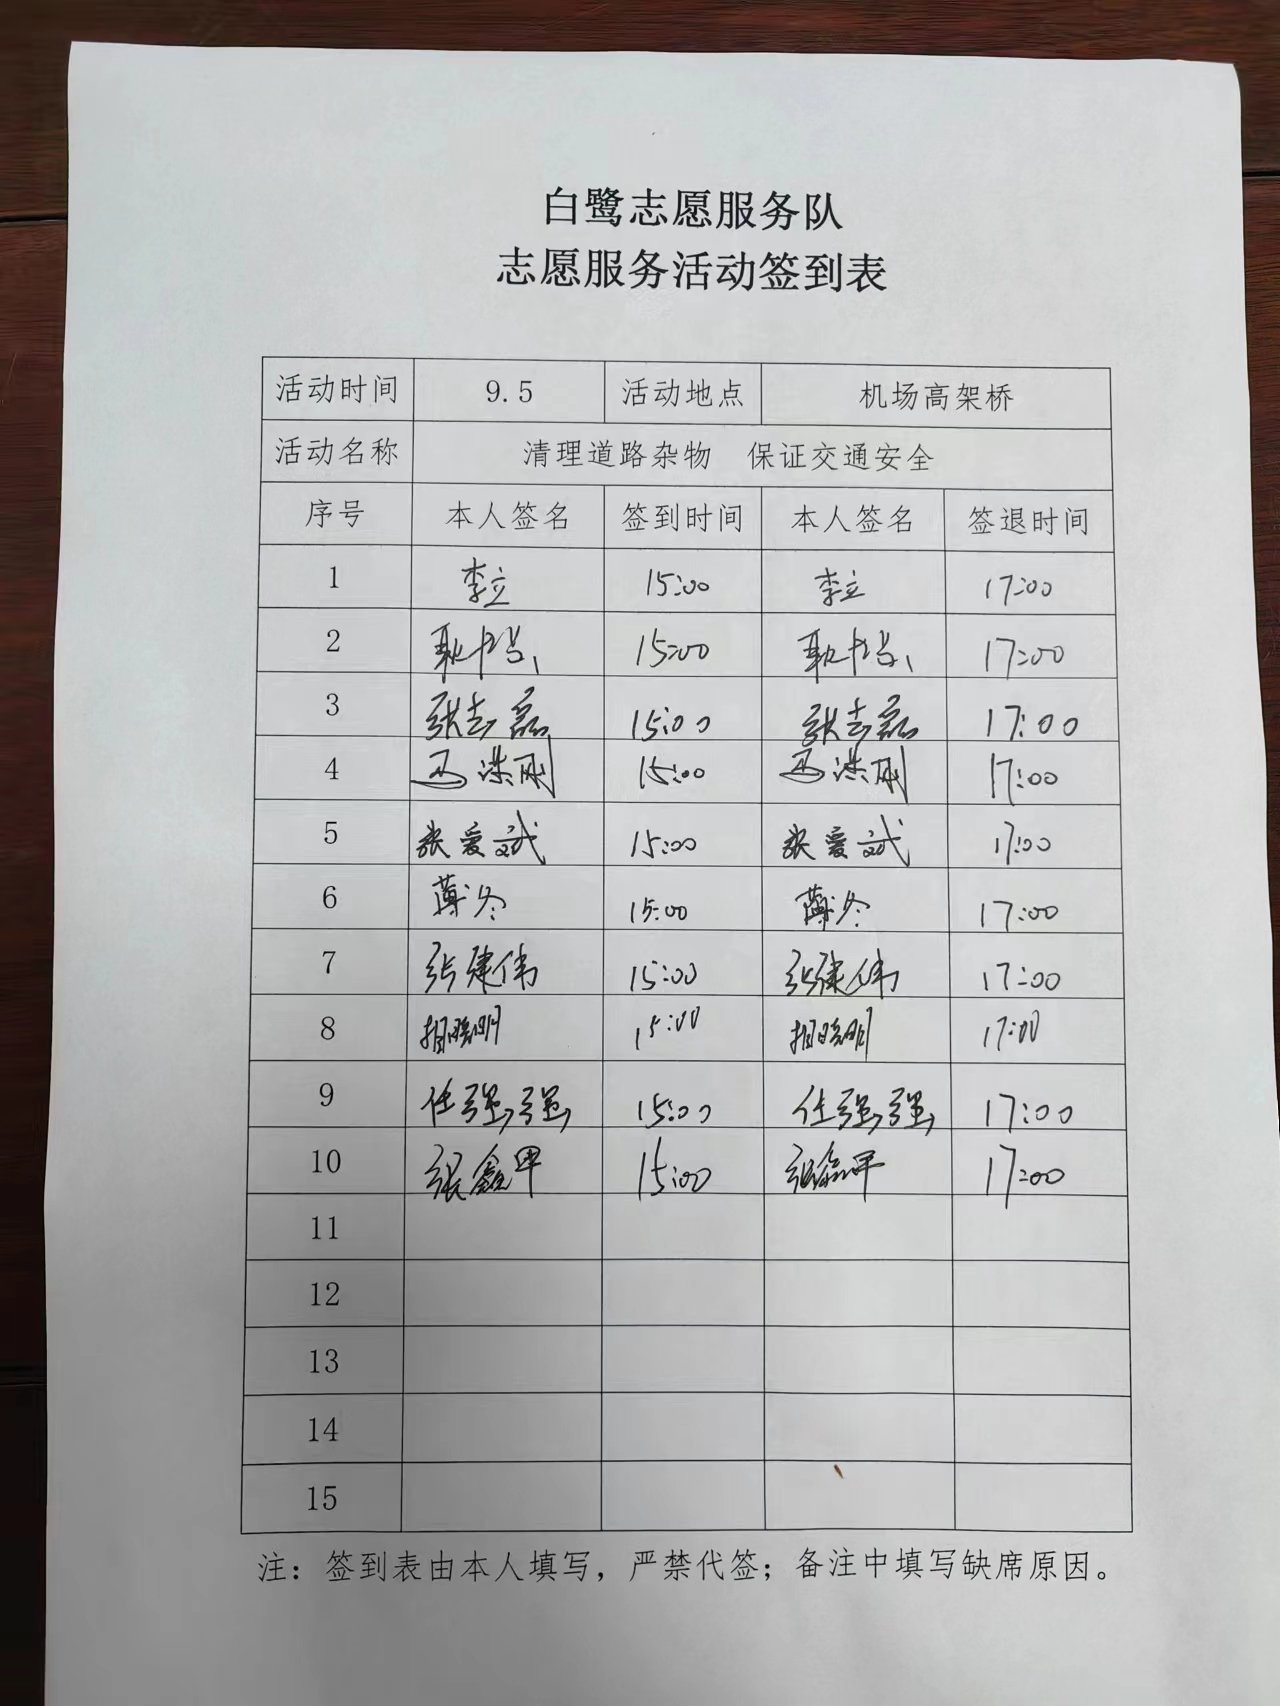 白鹭志愿服务队
志愿服务活动签到表
活动时间 9.5 活动地点 机场高架桥
活动名称 清理道路杂物 保证交通安全
序号 本人签名 签到时间 本人签名 签退时间
1 李立 15:00 李立 17:00
2 15:00 17:00
3 张志磊 15:00 张志磊 17:00
4 15:00 17:00
5 张爱斌 15:00 张爱斌 17:00
6 薄冬 15:00 薄冬 17:00
7 张建伟 15:00 张建伟 17:00
8 相晓明 15:00 相晓明 17:00
9 任强强 15:00 任强强 17:00
10 15:00 17:00
11
12
13
14
15
注：签到表由本人填写，严禁代签；备注中填写缺席原因。